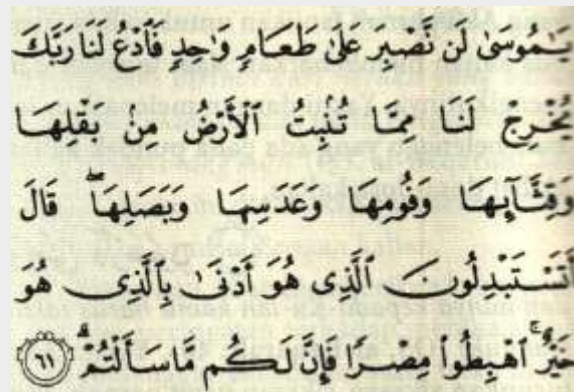 يَـٰمُوسَىٰ لَن نَّصْبِرَ عَلَىٰ طَعَامٍ وَٰحِدٍ فَٱدْعُ لَنَا رَبَّكَ
يُخْرِجْ لَنَا مِمَّا تُنۢبِتُ ٱلْأَرْضُ مِنۢ بَقْلِهَا
وَقِثَّآئِهَا وَفُومِهَا وَعَدَسِهَا وَبَصَلِهَا ۖ قَالَ
أَتَسْتَبْدِلُونَ ٱلَّذِى هُوَ أَدْنَىٰ بِٱلَّذِى هُوَ
خَيْرٌ ۚ ٱهْبِطُوا۟ مِصْرًا فَإِنَّ لَكُم مَّا سَأَلْتُمْ ۗ ٦١